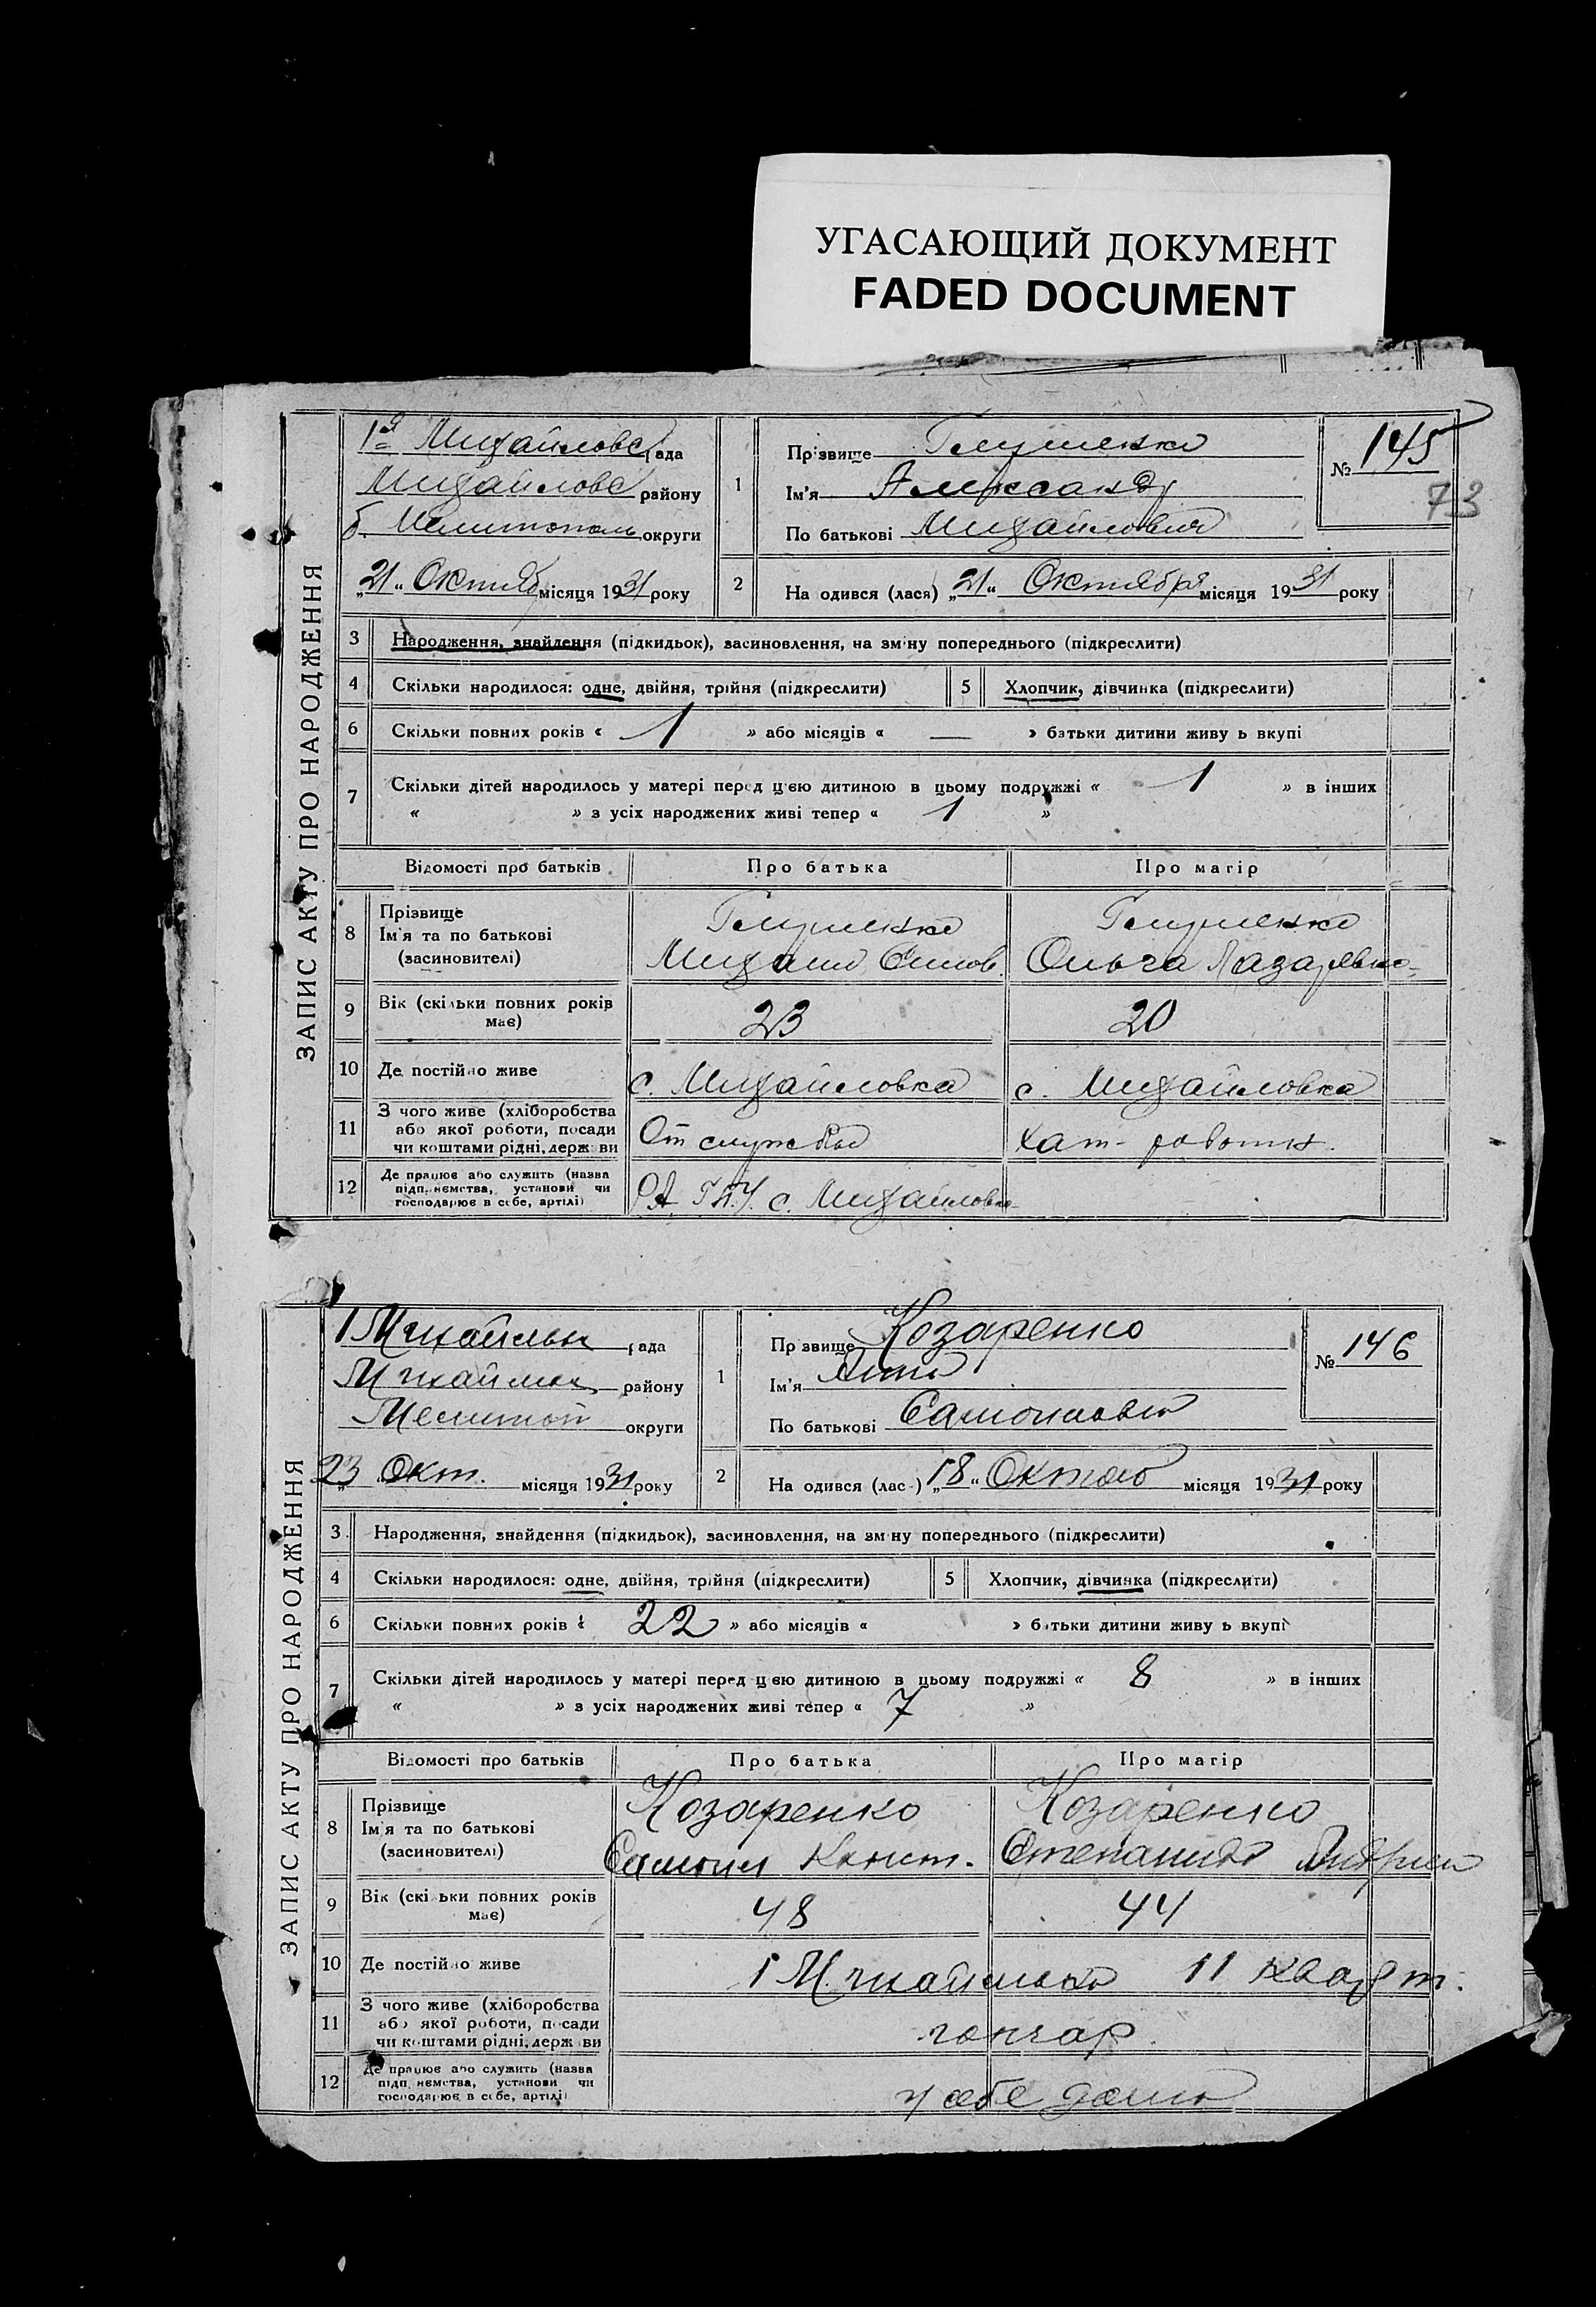 УГАСАЮЩИЙ ДОКУМЕНТ
FADED DOCUMENT
ЗАПИС АКТУ ПРО НАРОДЖЕННЯ
1я Михайловс рада
Михайловс району
б. Мелитополь округи
„21“ Октяб місяця 1931 року
1
Прізвище
Ім'я Александр
По батькові Михайлович
№ 145
73
2
На одився (лася) „21“ Октября місяця 1931 року
3 Народження, знайдення (підкидьок), засиновлення, на зміну попереднього (підкреслити)
4 Скільки народилося: одне, двійня, трійня (підкреслити) 5 Хлопчик, дівчинка (підкреслити)
6 Скільки повних років « 1 » або місяців « — » батьки дитини живу ь вкупі
7 Скільки дітей народилось у матері перед цією дитиною в цьому подружжі « 1 » в інших
« » з усіх народжених живі тепер « 1 »
Відомості про батьків Про батька Про матір
8 Прізвище
Ім'я та по батькові
(засиновителі)
Михаил
Ольга Лазаревна
9 Вік (скільки повних років має) 23 20
10 Де постійно живе с. Михайловка с. Михайловка
11 З чого живе (хліборобства
або якої роботи, посади
чи коштами рідні, держ ви
От службы Хат. работн.
12 Де працює або служить (назва
підп..ємства, установи чи
господарює в себе, артілі)
с. Михайловка
ЗАПИС АКТУ ПРО НАРОДЖЕННЯ
1 рада
району
Мелитоп округи
„23 Окт. місяця 1931 року
1
Пр звище Козаренко
Ім'я Анна
По батькові
№ 146
2
На одився (лас ) „18“ місяця 1931 року
3 Народження, знайдення (підкидьок), засиновлення, на зм ну попереднього (підкреслити)
4 Скільки народилося: одне, двійня, трійня (підкреслити) 5 Хлопчик, дівчинка (підкреслити)
6 Скільки повних років « 22 » або місяців « » б тьки дитини живу ь вкупі
7 Скільки дітей народилось у матері перед цією дитиною в цьому подружжі « 8 » в інших
« » з усіх народжених живі тепер « 7 »
Відомості про батьків Про батька Про матір
8 Прізвище
Ім'я та по батькові
(засиновителі)
Козаренко Козаренко
Самоил Конст. Степанида
9 Вік (скі ьки повних років має) 48 44
10 Де постійно живе 1 11 кварт.
11 З чого живе (хліборобства
або якої роботи, посади
чи коштами рідні, держ ви
гончар
12 Де працює або служить (назва
підп. ємства, установи чи
господарює в себе, артілі)
у себе дома